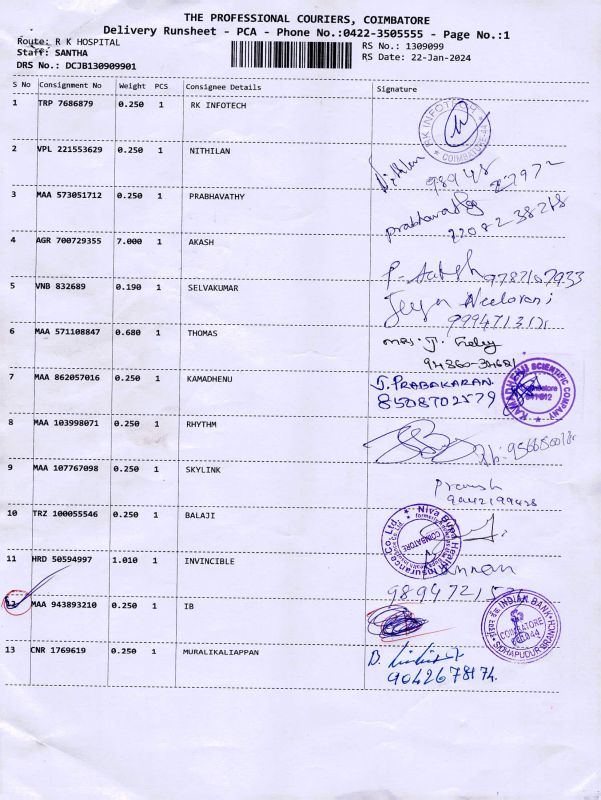 THE PROFESSIONAL COURIERS, COIMBATORE
Delivery Runsheet - PCA - Phone No.:0422-3505555 - Page No.:1
Route: R K HOSPITAL
RS No.: 1309099
Staff: SANTHA
RS Date: 22-Jan-2024
DRS No.: DCJB130909901
S No Consignment No Weight PCS Consignee Details Signature
1 TRP 7686879 0.250 1 RK INFOTECH
RK INFOTECH
COIMBATORE-44
2 VPL 221553629 0.250 1 NITHILAN
Nithilan
3 MAA 573051712 0.250 1 PRABHAVATHY
prabhavathy
4 AGR 700729355 7.000 1 AKASH
9787107933
5 VNB 832689 0.190 1 SELVAKUMAR
6 MAA 571108847 0.680 1 THOMAS
7 MAA 862057016 0.250 1 KAMADHENU
J. PRABAKARAN
8508702579
KAMADHENU SCIENTIFIC COMPANY
Coimbatore
641 012
8 MAA 103998071 0.250 1 RHYTHM
9 MAA 107767098 0.250 1 SKYLINK
10 TRZ 100055546 0.250 1 BALAJI
Niva Bupa Health Insurance Co. Ltd.
COIMBATORE
11 HRD 50594997 1.010 1 INVINCIBLE
12 MAA 943893210 0.250 1 IB
INDIAN BANK
COIMBATORE
SIDHAPUDUR BRANCH
13 CNR 1769619 0.250 1 MURALIKALIAPPAN
9042678174